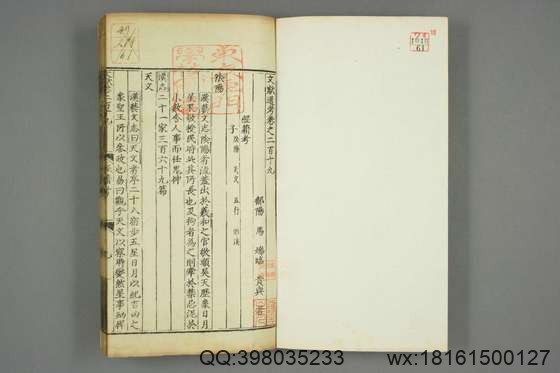 文獻通考卷之二百十九
鄱陽 馬 端臨 貴與 著
經籍考
子 陰陽 天文 五行 占筮
陰陽
漢藝文志陰陽者流蓋出於羲和之官敬順昊天歷象日月
星辰敬授民時此其所長也及拘者為之則牽於禁忌泥於
小數舍人事而任鬼神
漢志二十一家三百六十九篇
天文
漢藝文志曰天文者序二十八宿步五星日月以紀吉凶之
象聖王所以參政也易曰觀乎天文以察時變然星事
1010
61
QQ:398035233
wx:18161500127